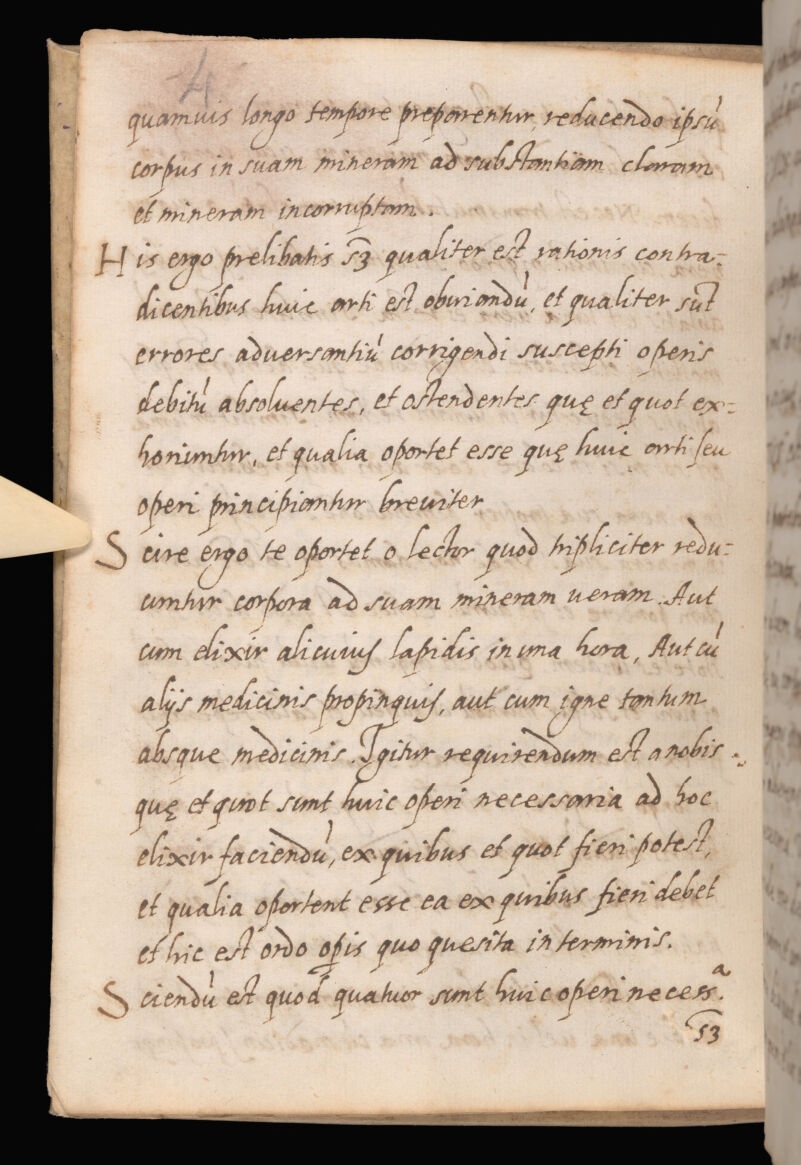 4
quamuis longo tempore preparentur, reducendo ipsū
corpus in suam mineram ad substantiam claram
et mineram incorruptam.
His ergo prelibatis s3 qualiter est rationis contra-
dicentibus huic arti est obuiandū, et qualiter sūt
errores aduersantiū corrigendi suscepti operis
debitū absoluentes, et ostendentes quę et quot ex=
honiuntur, et qualia oportet esse quę huic arti seu
operi principiantur breuiter
Scire ergo te oportet o lector quod tripliciter redu=
cuntur corpora ad suam mineram ueram. Aut
cum elixir alicuius lapidis in una hora, Aut cū
alijs medicinis propinquis, aut cum igne tantum
absque medicinis. Igitur requirendum est a nobis
quę et quot sunt huic operi necessaria ad hoc
elixir faciendū, ex quibus et quot fieri potest,
et qualia oportent esse ea ex quibus fieri debet
et hic est ordo opis quo quesita in terminis.
Sciendū est quod quatuor sunt huic operi necessᵃ.
s3